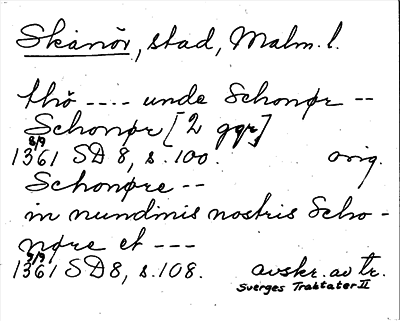 Skanör, stad, Malm. l.
thö ---- unde Schonør --
Schonør [2 ggr]
8/9
1361 SD 8, s. 100. orig.
Schonøre --
in nundinis nostris Scho-
nøre et ---
9/9
1361 SD 8, s. 108. avskr. av tr.
Sverges Traktater II